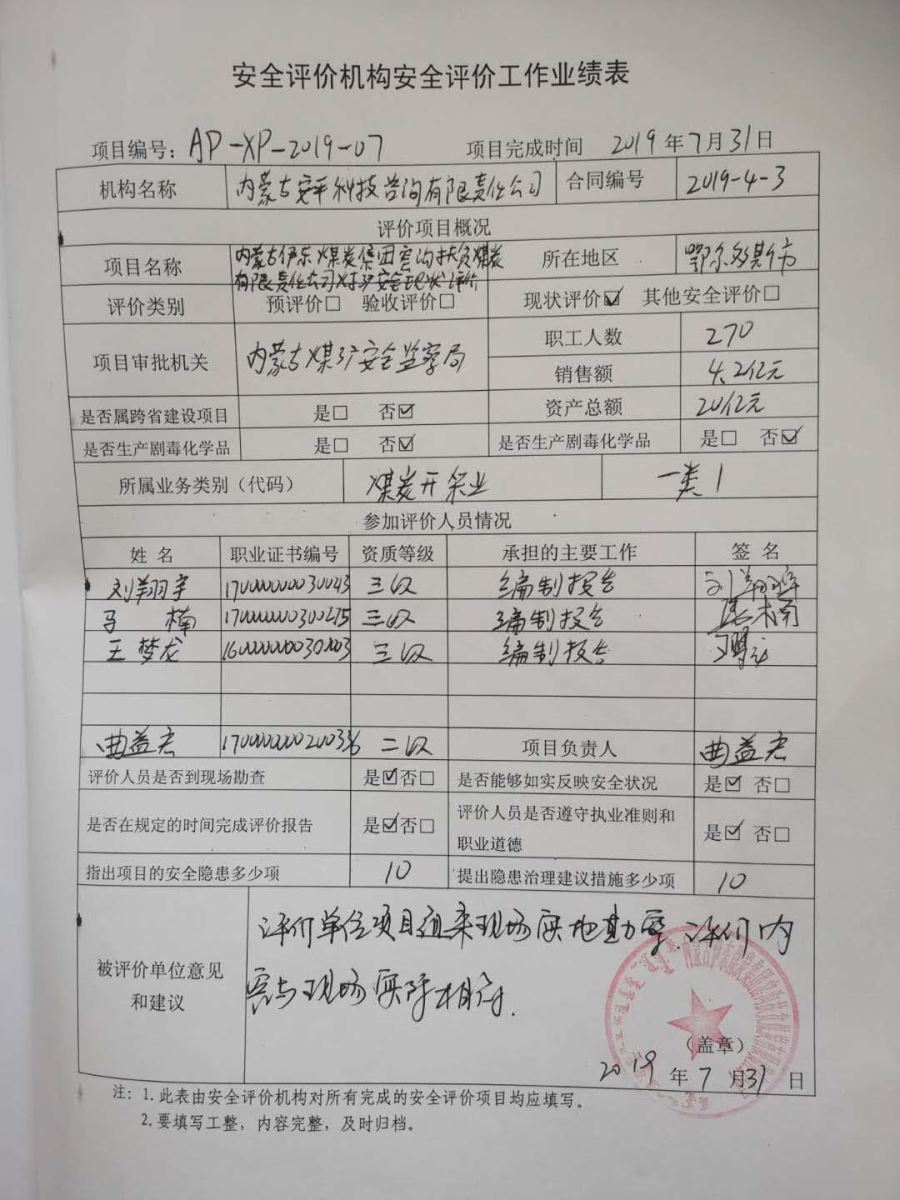 安全评价机构安全评价工作业绩表
项目编号：AP-XP-2019-07 项目完成时间 2019年7月31日
机构名称 内蒙古安平科技咨询有限责任公司 合同编号 2019-4-3
评价项目概况
项目名称 内蒙古伊东煤炭集团窑沟扶贫煤炭
有限责任公司煤矿安全现状评价 所在地区 鄂尔多斯市
评价类别 预评价□ 验收评价□ 现状评价☑ 其他安全评价□
项目审批机关 内蒙古煤矿安全监察局 职工人数 270
销售额 4.2亿元
是否属跨省建设项目 是□ 否☑ 资产总额 20亿元
是否生产剧毒化学品 是□ 否☑ 是否生产剧毒化学品 是□ 否☑
所属业务类别（代码） 煤炭开采业 一类1
参加评价人员情况
姓名 职业证书编号 资质等级 承担的主要工作 签名
刘翔宇 三级 编制报告 刘翔宇
马楠 三级 编制报告 马楠
王梦龙 三级 编制报告
曲益宏 二级 项目负责人 曲益宏
评价人员是否到现场勘查 是☑否□ 是否能够如实反映安全状况 是☑ 否□
是否在规定的时间完成评价报告 是☑否□ 评价人员是否遵守执业准则和
职业道德 是☑ 否□
指出项目的安全隐患多少项 10 提出隐患治理建议措施多少项 10
被评价单位意见
和建议
评价单位项目组来现场实地勘察，评价内
容与现场实际相符.
（盖章）
2019年7月31日
注：1.此表由安全评价机构对所有完成的安全评价项目均应填写。
2.要填写工整，内容完整，及时归档。